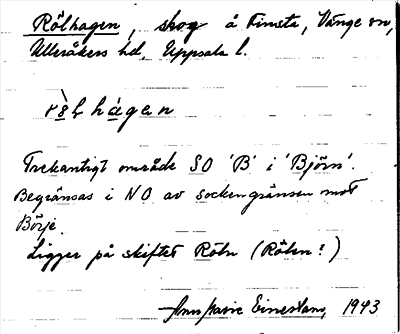 Rölhagen, skog å Fimsta, Vänge sn,
Ulleråkers hd, Uppsala l.
Trekantigt område SO 'B' i 'Björn'.
Begränsas i NO av sockengränsen mot
Börje.
Ligger på skiftet Röln (Rölen?)
Einerstam, 1943